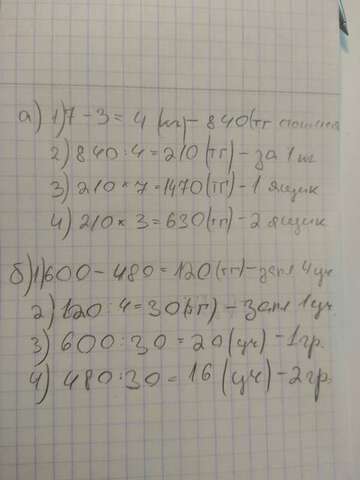 а) 1) 7 - 3 = 4 (кг) - 840 (тг
2) 840 : 4 = 210 (тг) - за 1 кг
3) 210 × 7 = 1470 (тг) - 1 ящик
4) 210 × 3 = 630 (тг) - 2 ящик
б) 1) 600 - 480 = 120 (тг) - запл 4 уч
2) 120 : 4 = 30 (тг) - запл 1 уч
3) 600 : 30 = 20 (уч) - 1 гр.
4) 480 : 30 = 16 (уч) - 2 гр.